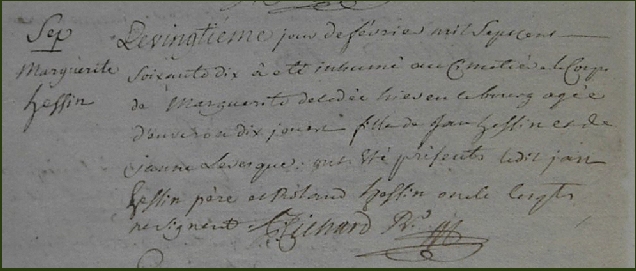 Sep
Marguerite
hessin
Le vingtième jour de février mil Sept cens
soixante dix à eté inhumé au Cimetiere le Corps
de Marguerite decedée hier en ce bourg agée
d'environ dix jours fille de Jan hessin et de
jeanne Levesque. ont Eté présents ledit jan
hessin père et Roland hessin oncle lesquels
ne signent Richard